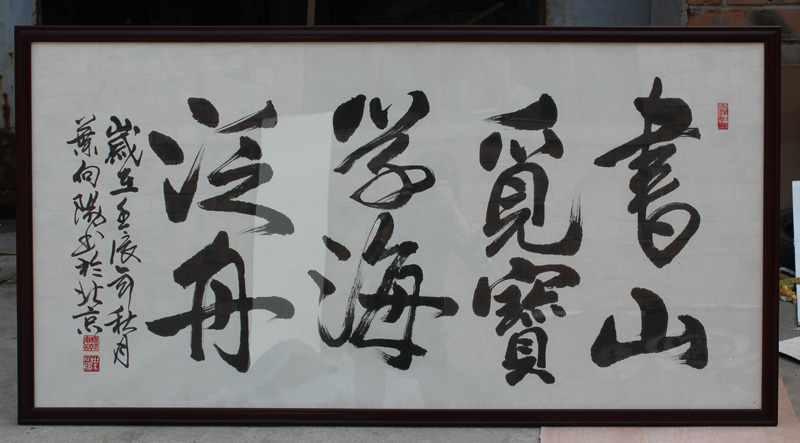 書山
覓寶
学海
泛舟
歲在壬辰年秋月
葉向陽书於北京